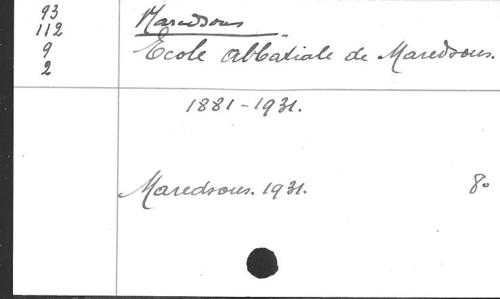 93
112
9
2
Maredsous
Ecole abbatiale de Maredsous.
1881-1931.
Maredsous. 1931. 8o